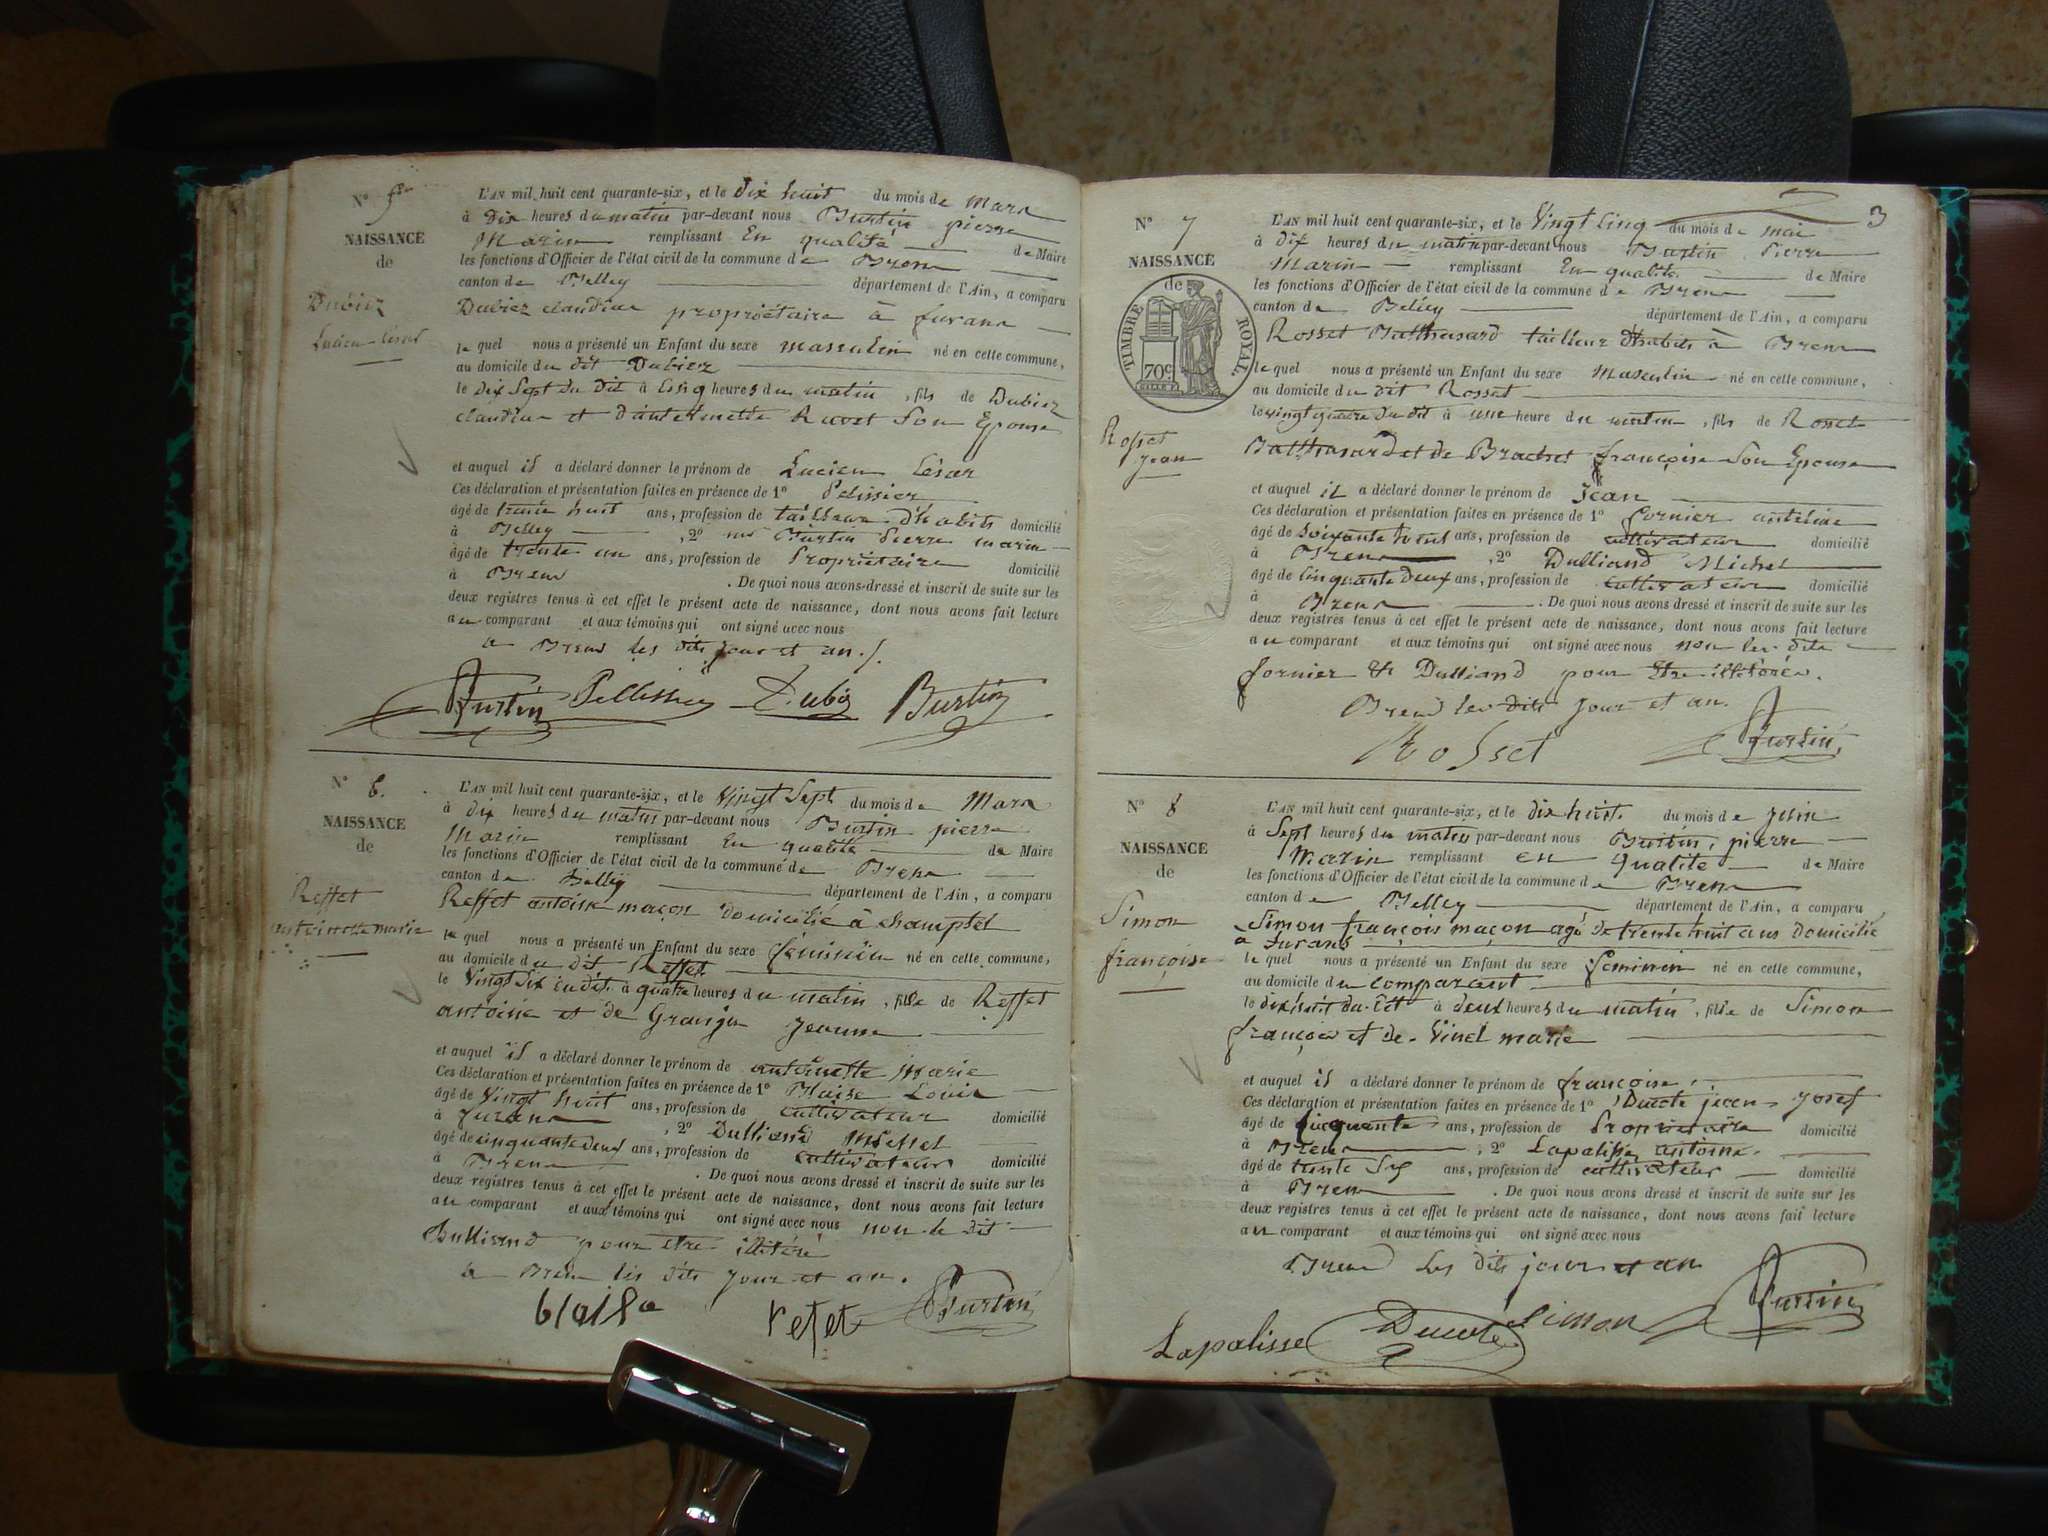 N° 5
NAISSANCE
de
Dubiez
Lucien César
L'AN mil huit cent quarante-six, et le Dix huit du mois de Mars
à Dix heures du matin par-devant nous Burtin pierre
Marin remplissant En qualité de Maire
les fonctions d'Officier de l'état civil de la commune de Brens
canton de Belley département de l'Ain, a comparu
Dubiez claudius propriétaire à furans
le quel nous a présenté un Enfant du sexe masculin né en cette commune,
au domicile du dit Dubiez
le Dix Sept du Dit à Cinq heures du matin, fils de Dubiez
claudius et d'antermette Ravet Son Epouse
et auquel il a déclaré donner le prénom de Lucien César
Ces déclaration et présentation faites en présence de 1° Pelissier
âgé de trente huit ans, profession de tailleur d'habits domicilié
à Belley, 2° Burtin Pierre marin
âgé de trente un ans, profession de Propriétaire domicilié
à Brens. De quoi nous avons dressé et inscrit de suite sur les
deux registres tenus à cet effet le présent acte de naissance, dont nous avons fait lecture
au comparant et aux témoins qui ont signé avec nous
a Brens les dits jour et an.
Burtin Pellissier Dubiez Burtin
N° 6.
NAISSANCE
de
Reffet
antoinette marie
L'AN mil huit cent quarante-six, et le Vingt Sept du mois de Mars
à dix heures du matin par-devant nous Burtin pierre
Marin remplissant En qualité de Maire
les fonctions d'Officier de l'état civil de la commune de Brens
canton de Belley département de l'Ain, a comparu
Reffet antoine maçon domicilié à champtel
le quel nous a présenté un Enfant du sexe féminin né en cette commune,
au domicile du dit Reffet
le Vingt Six du dit à quatre heures du matin, fille de Reffet
antoine et de Granger jeanne
et auquel il a déclaré donner le prénom de antoinette marie
Ces déclaration et présentation faites en présence de 1° Blaise Louis
âgé de Vingt huit ans, profession de cultivateur domicilié
à furans, 2° Dulliand Michel
âgé de cinquante deux ans, profession de cultivateur domicilié
à Brens. De quoi nous avons dressé et inscrit de suite sur les
deux registres tenus à cet effet le présent acte de naissance, dont nous avons fait lecture
au comparant et aux témoins qui ont signé avec nous non le dit
Dulliand pour etre illétéré
a Brens les dits jour et an.
refet Burtin
3
N° 7
NAISSANCE
de
TIMBRE ROYAL
70c
Rosset
Jean
L'AN mil huit cent quarante-six, et le Vingt Cinq du mois de mai
à dix heures du matin par-devant nous Burtin Pierre
Marin remplissant En qualité de Maire
les fonctions d'Officier de l'état civil de la commune de Brens
canton de Belley département de l'Ain, a comparu
Rosset Balthasard tailleur d'habits à Brens
le quel nous a présenté un Enfant du sexe Masculin né en cette commune,
au domicile du dit Rosset
le vingt quatre du dit à une heure du matin, fils de Rosset
Balthasard et de Brachet françoise Son Epouse
et auquel il a déclaré donner le prénom de Jean
Ces déclaration et présentation faites en présence de 1° fornier antelme
âgé de soixante huit ans, profession de cultivateur domicilié
à Brens, 2° Dulliand Michel
âgé de Cinquante deux ans, profession de cultivateur domicilié
à Brens. De quoi nous avons dressé et inscrit de suite sur les
deux registres tenus à cet effet le présent acte de naissance, dont nous avons fait lecture
au comparant et aux témoins qui ont signé avec nous non les dits
fornier et Dulliand pour Etre illétérés.
Brens les dits jour et an.
Rosset Burtin
N° 8
NAISSANCE
de
Simon
françoise
L'AN mil huit cent quarante-six, et le dix huit du mois de juin
à Sept heures du matin par-devant nous Burtin, pierre
Marin remplissant en qualité de Maire
les fonctions d'Officier de l'état civil de la commune de Brens
canton de Belley département de l'Ain, a comparu
Simon françois maçon agé de trente huit ans domicilié
à furans
le quel nous a présenté un Enfant du sexe féminin né en cette commune,
au domicile du comparant
le dix huit du dit à deux heures du matin, fille de Simon
françois et de Vinet marie
et auquel il a déclaré donner le prénom de françoise
Ces déclaration et présentation faites en présence de 1° Ducote jean josef
âgé de cinquante ans, profession de Propriétaire domicilié
à Brens, 2° Lapalisse antoine
âgé de trente Six ans, profession de cultivateur domicilié
à Brens. De quoi nous avons dressé et inscrit de suite sur les
deux registres tenus à cet effet le présent acte de naissance, dont nous avons fait lecture
au comparant et aux témoins qui ont signé avec nous
Brens les dits jour et an
Lapalisse Ducote Simon Burtin